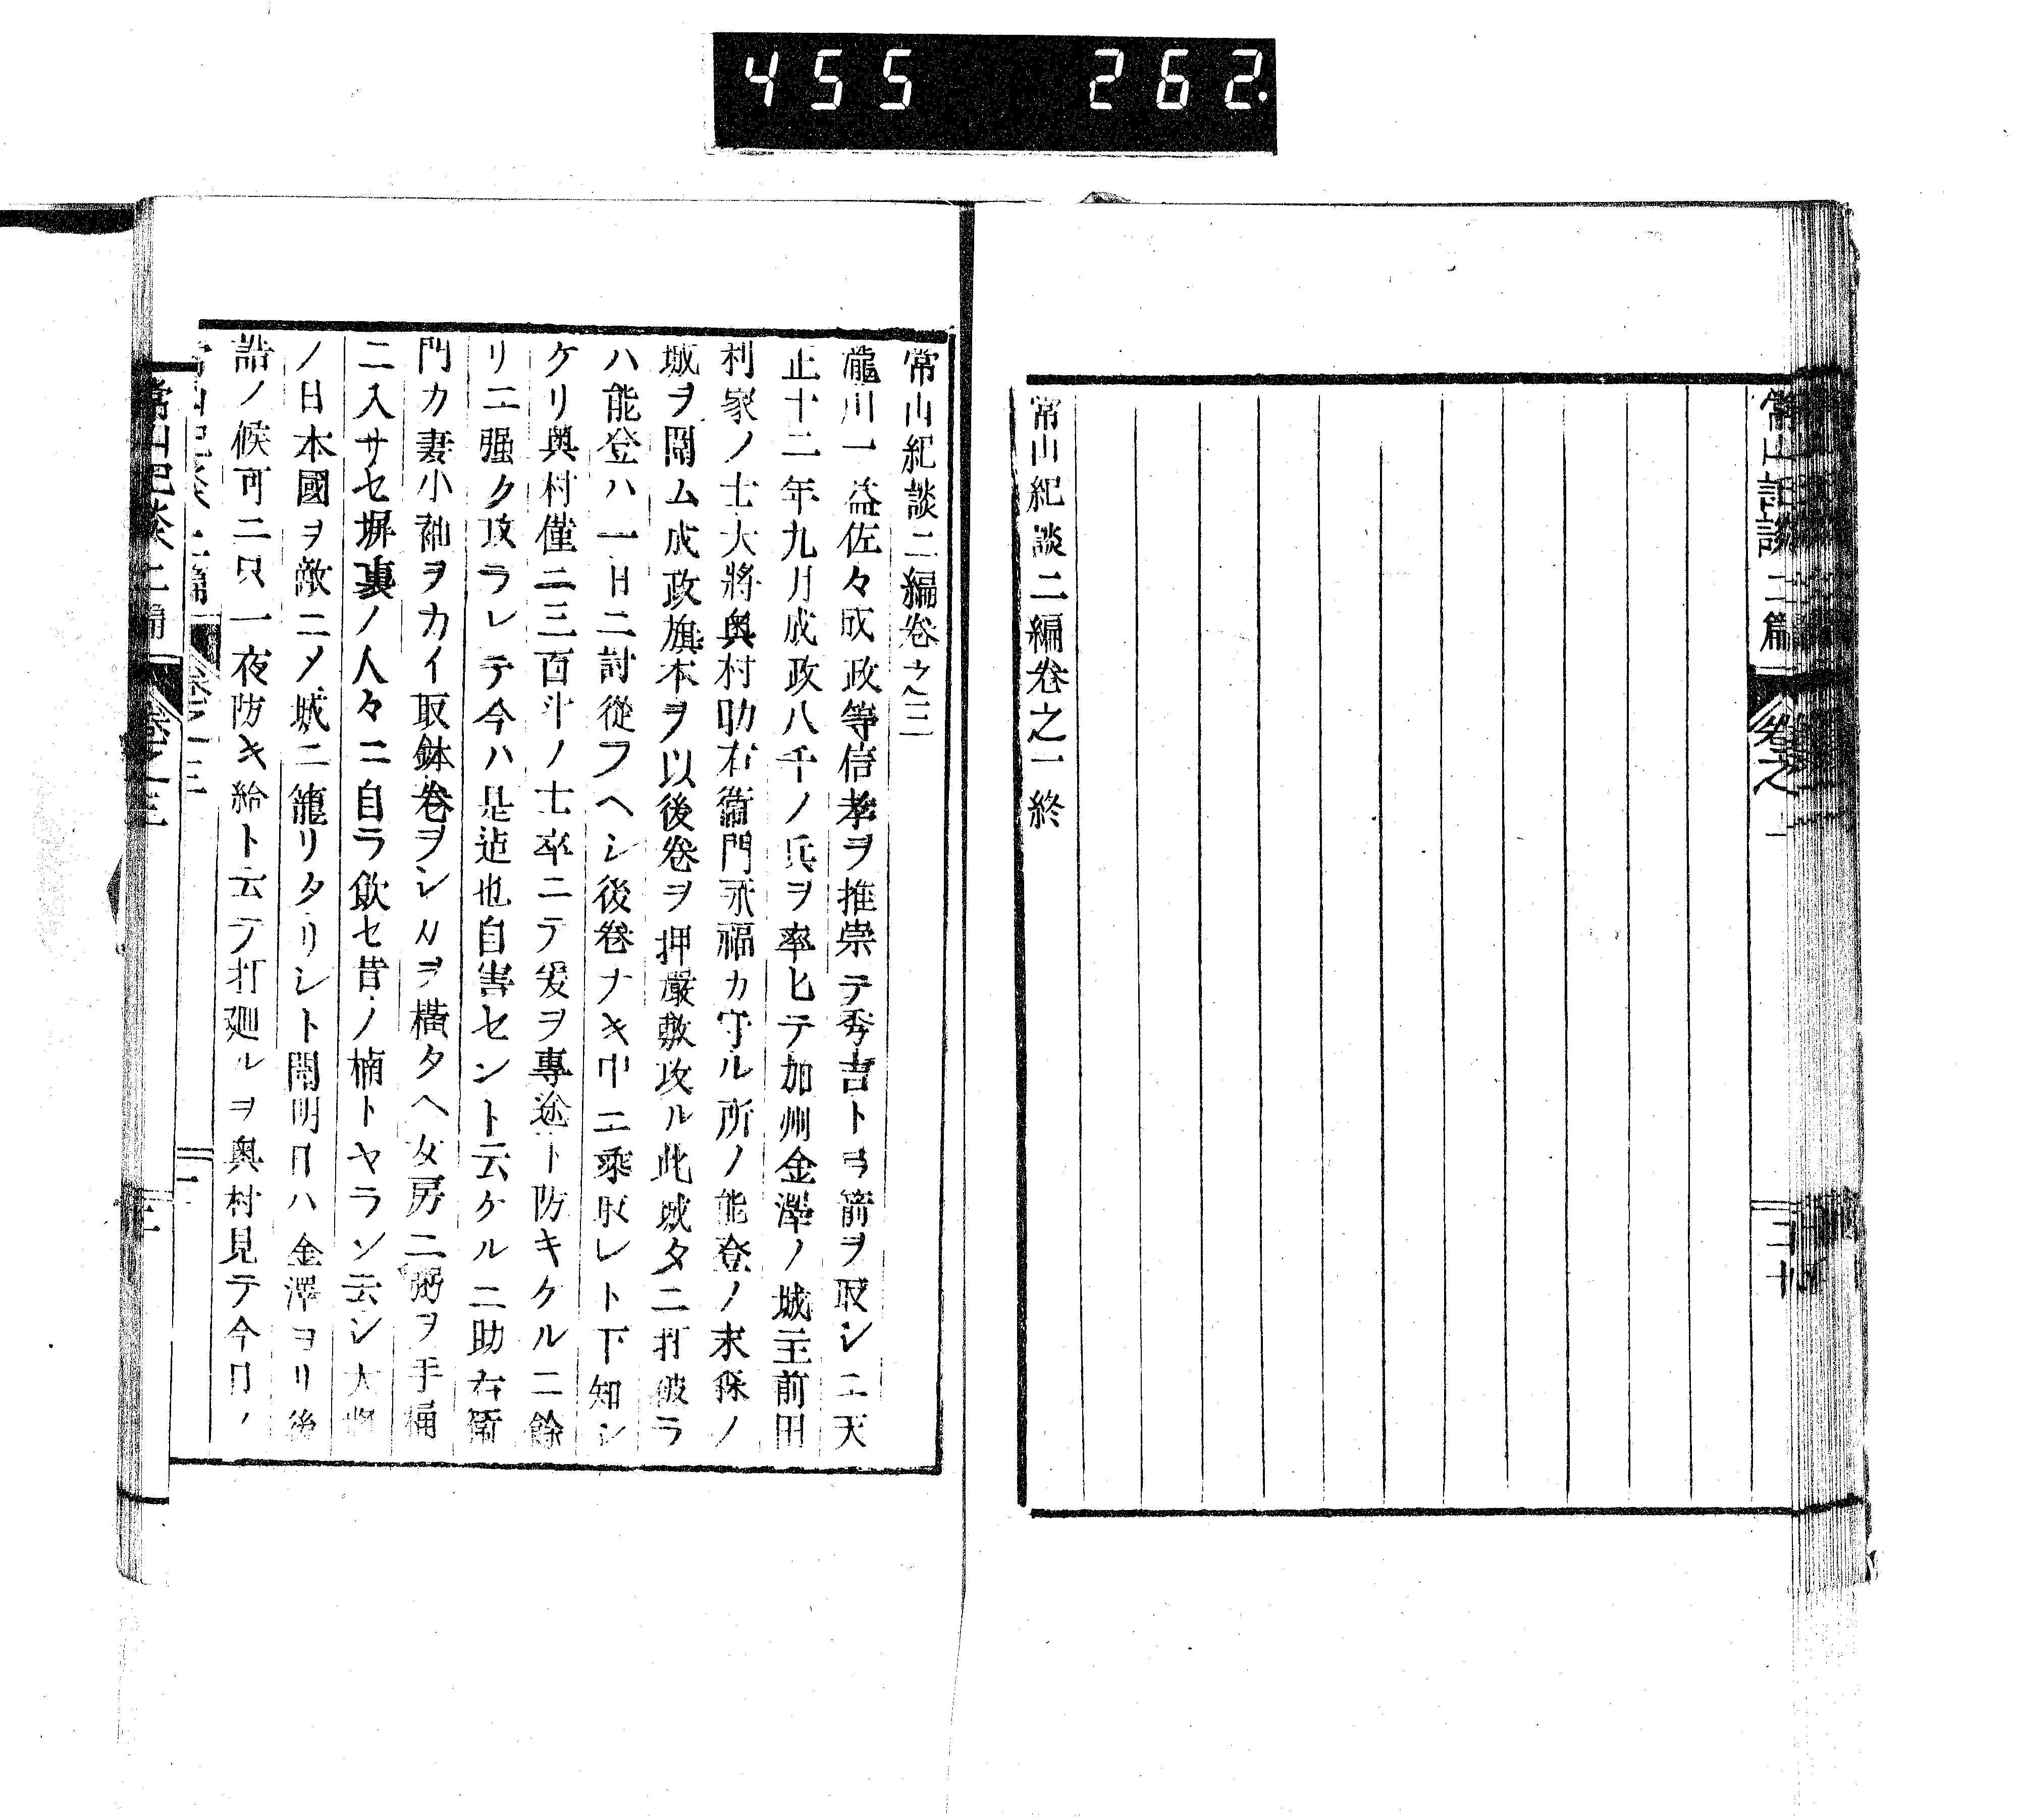 455 262.
常山紀談二篇 卷之一
常山紀談二編卷之一終
常山紀談二編卷之三
瀧川一益佐々成政等信孝ヲ推崇テ秀吉ト弓箭ヲ取シニ天
正十二年九月成政八千ノ兵ヲ率ヒテ加州金澤ノ城主前田
利家ノ士大將奥村助右衞門永福カ守ル所ノ能登ノ末森ノ
城ヲ圍ム成政旗本ヲ以後卷ヲ押嚴敷攻ル此城タニ打破ラ
ハ能登ハ一日ニ討從フヘシ後卷ナキ中ニ乘取レト下知シ
ケリ奥村僅ニ三百斗ノ士卒ニテ爰ヲ專途ト防キケルニ餘
リニ强ク攻ラレテ今ハ是迠也自害セント云ケルニ助右衞
門カ妻小袖ヲカイ取鉢卷ヲシ刀ヲ横タヘ女房ニ粥ヲ手桶
ニ入サセ塀裏ノ人々ニ自ラ飲セ昔ノ楠トヤラン云シ大將
ノ日本國ヲ敵ニメ城ニ籠リタリシト聞明日ハ金澤ヨリ後
詰ノ候可ニ只一夜防キ給ト云テ打廻ルヲ奥村見テ今日ノ
常山紀談二篇 卷之三 一
常山紀談二編 卷之三